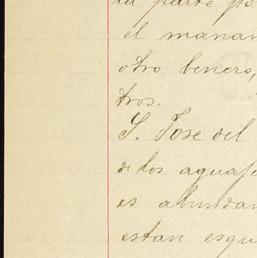 la parte po
el manan
otro benero,
tros.
S. Jose del
de los aguas
es abundan
estan esqu